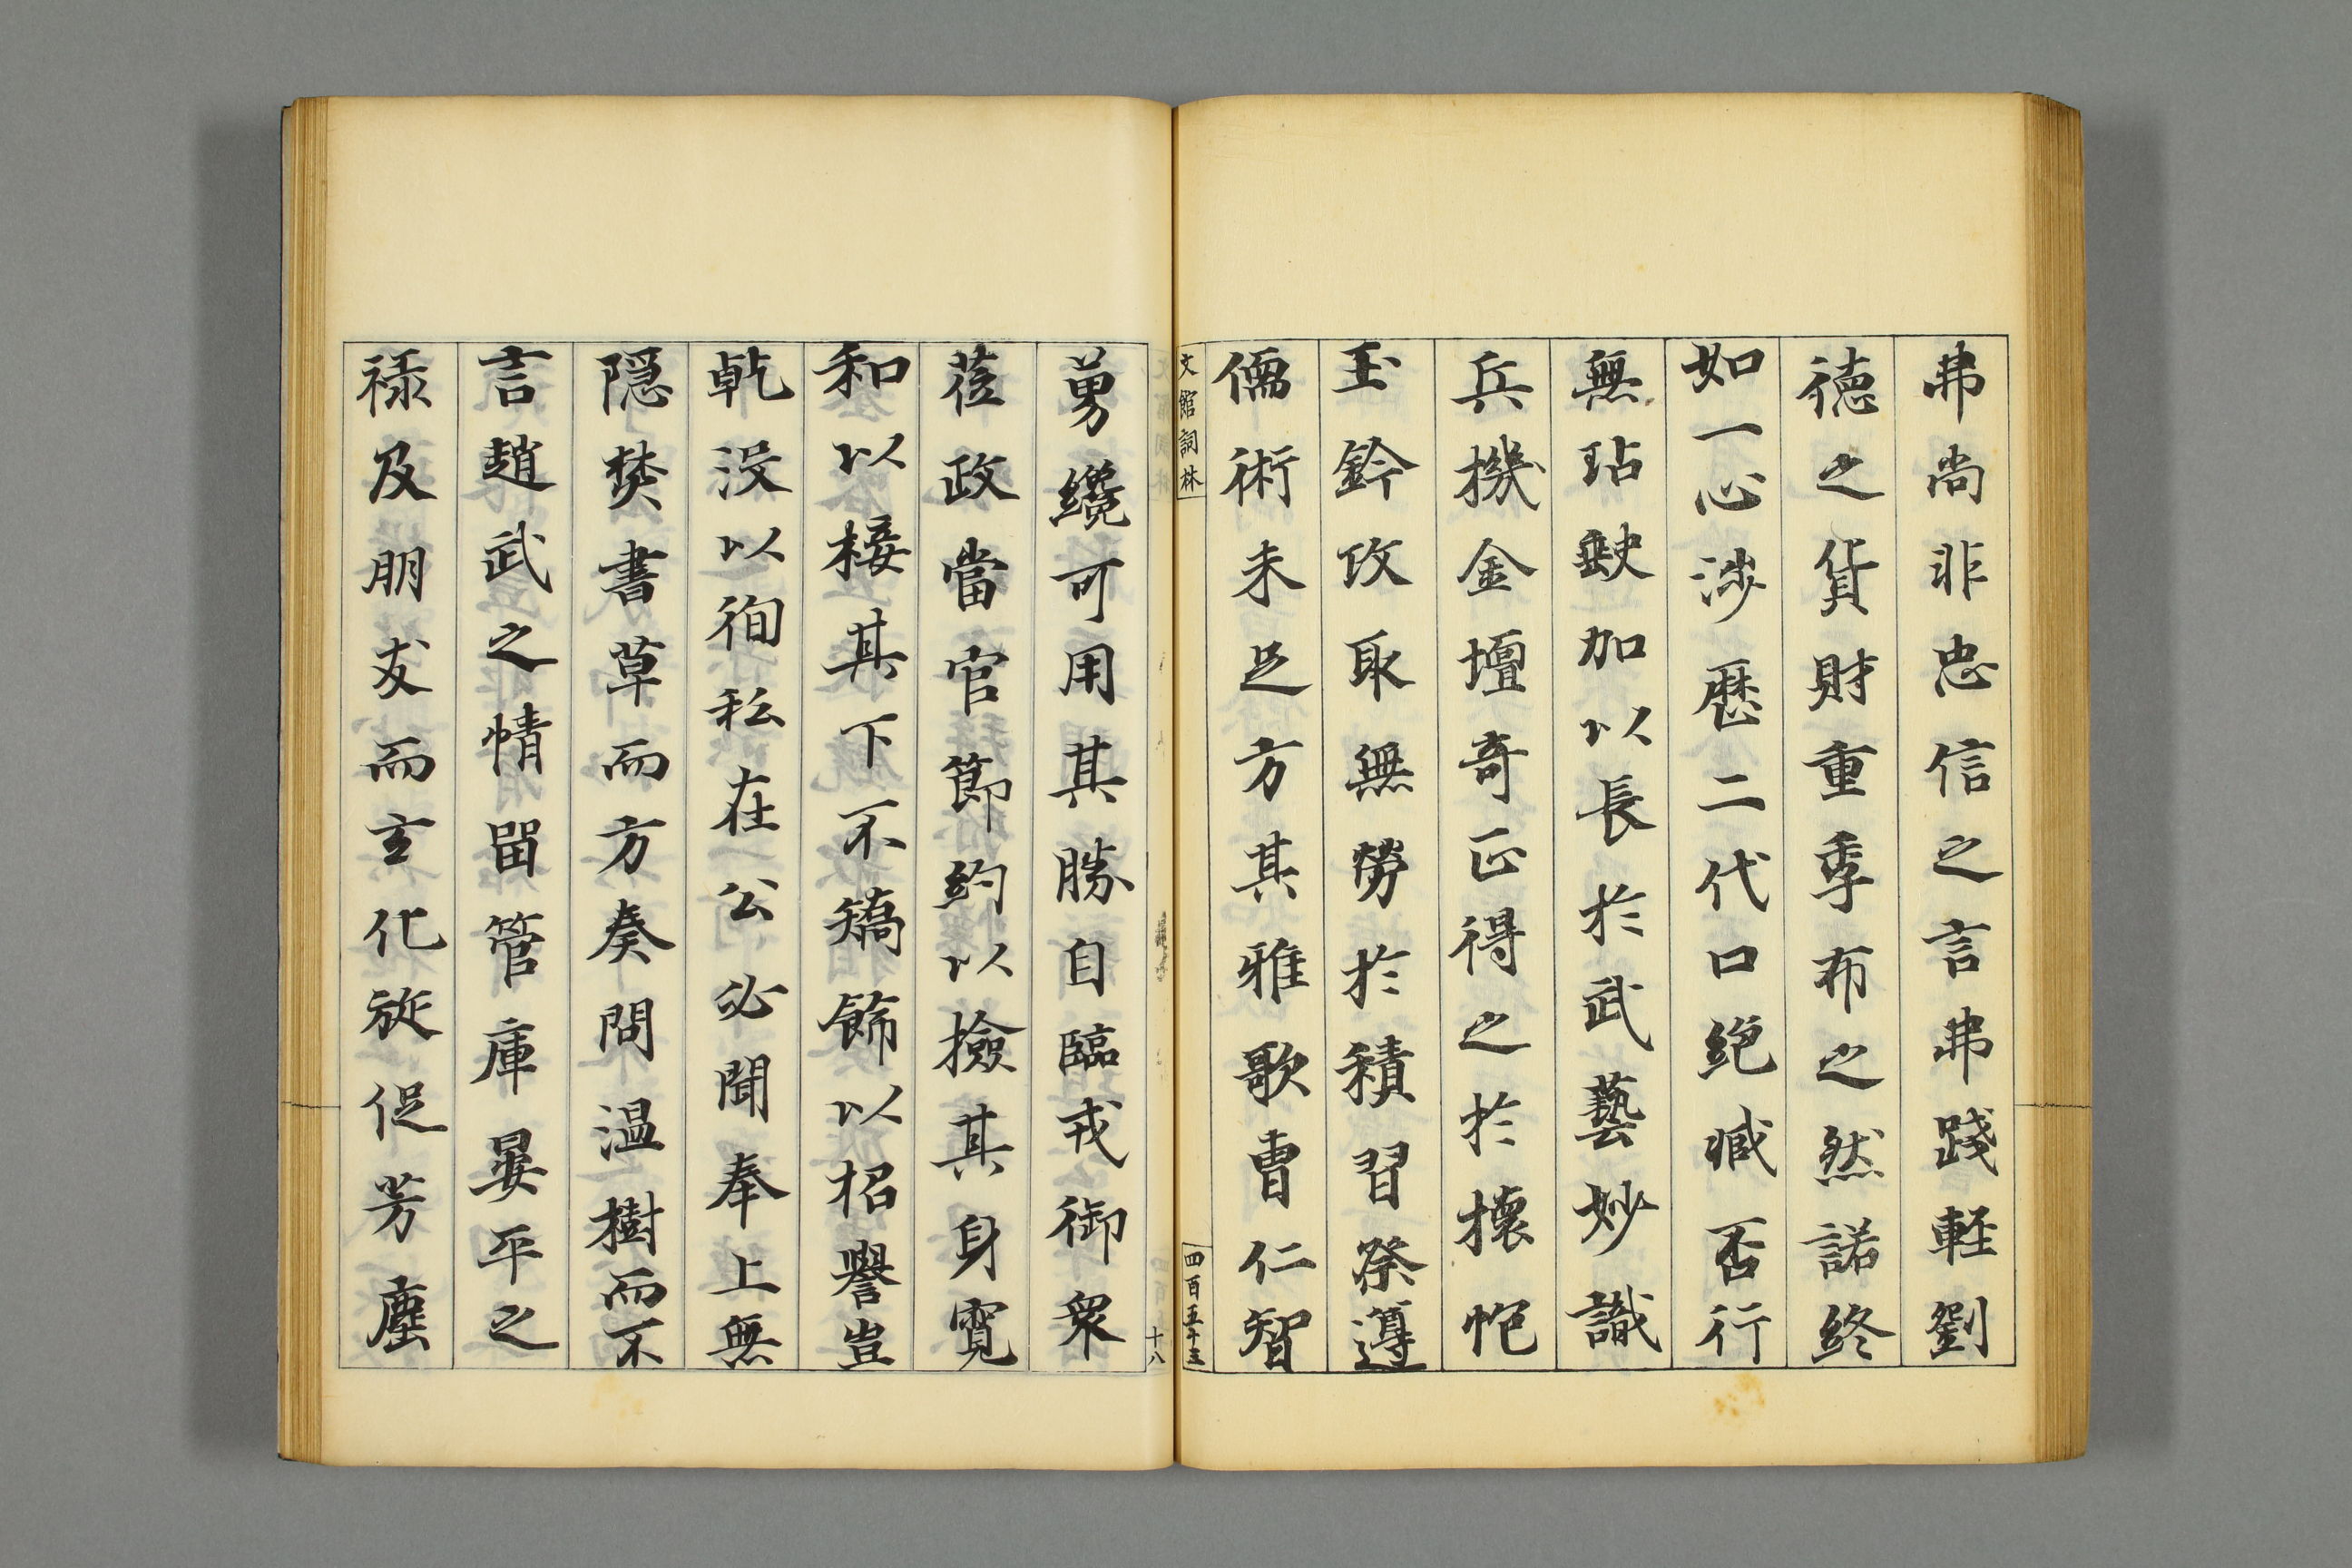 弗尚非忠信之言弗踐軽劉
徳之貨財重季布之然諾終
如一心渉歴二代口絶臧否行
無玷缺加以長於武藝妙識
兵機金壇奇正得之於懐怉
玉鈐攻取無勞於積習祭遵
儒術未足方其雅歌曹仁智
文館詞林
四百五十三
十八
勇纔可用其勝自臨戎御衆
莅政當官節約以撿其身寛
和以接其下不矯飾以招譽豈
乹没以徇私在公必聞奉上無
隠焚書草而方奏問温樹而不
言趙武之情留管庫晏平之
禄及朋友而玄化旋促芳塵